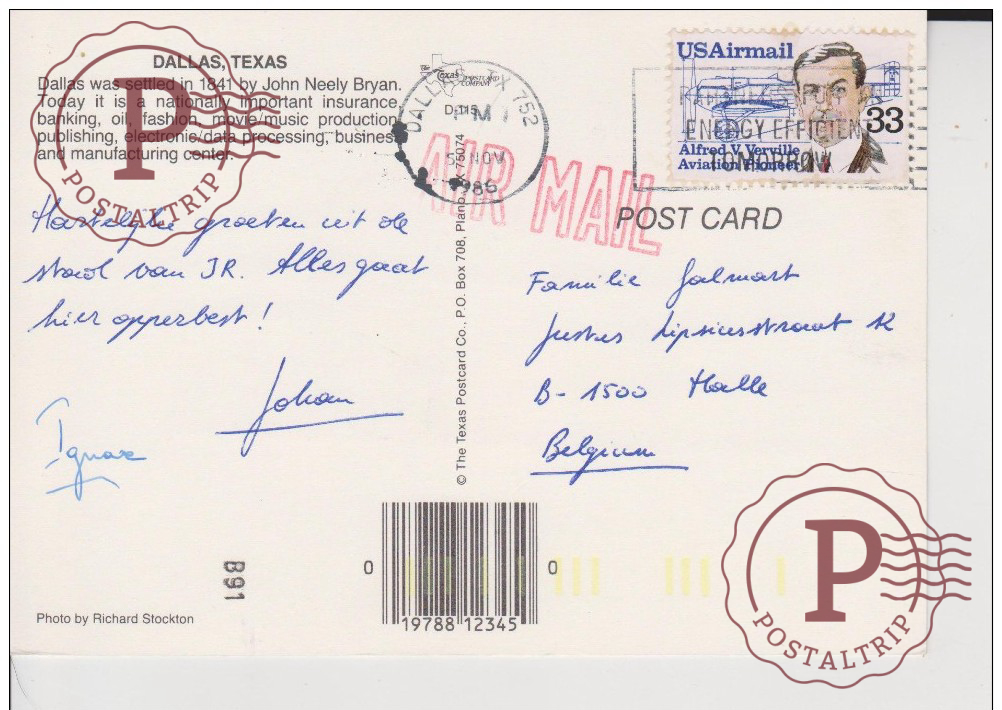 DALLAS, TEXAS
Dallas was settled in 1841 by John Neely Bryan.
Today it is a nationally important insurance,
banking, oil, fashion, movie/music production,
publishing, electronic/data processing, business
and manufacturing center.
P
POSTALTRIP
Hartelijke groeten uit de
stad van JR. Alles gaat
hier opperbest!
Johan
Ignace
Photo by Richard Stockton
B91
The Texas POSTCARD COMPANY
D-215
DALLAS, TX 752
PM
5 NOV
1986
AIR MAIL
© The Texas Postcard Co., P.O. Box 708, Plano, TX 75074
USAirmail
33
Alfred V. Verville
Aviation Pioneer
ENERGY EFFICIENT
TOMORROW
POST CARD
Familie
Justus Lipsiusstraat 12
B-1500 Halle
Belgium
0 19788 12345 0
P
POSTALTRIP